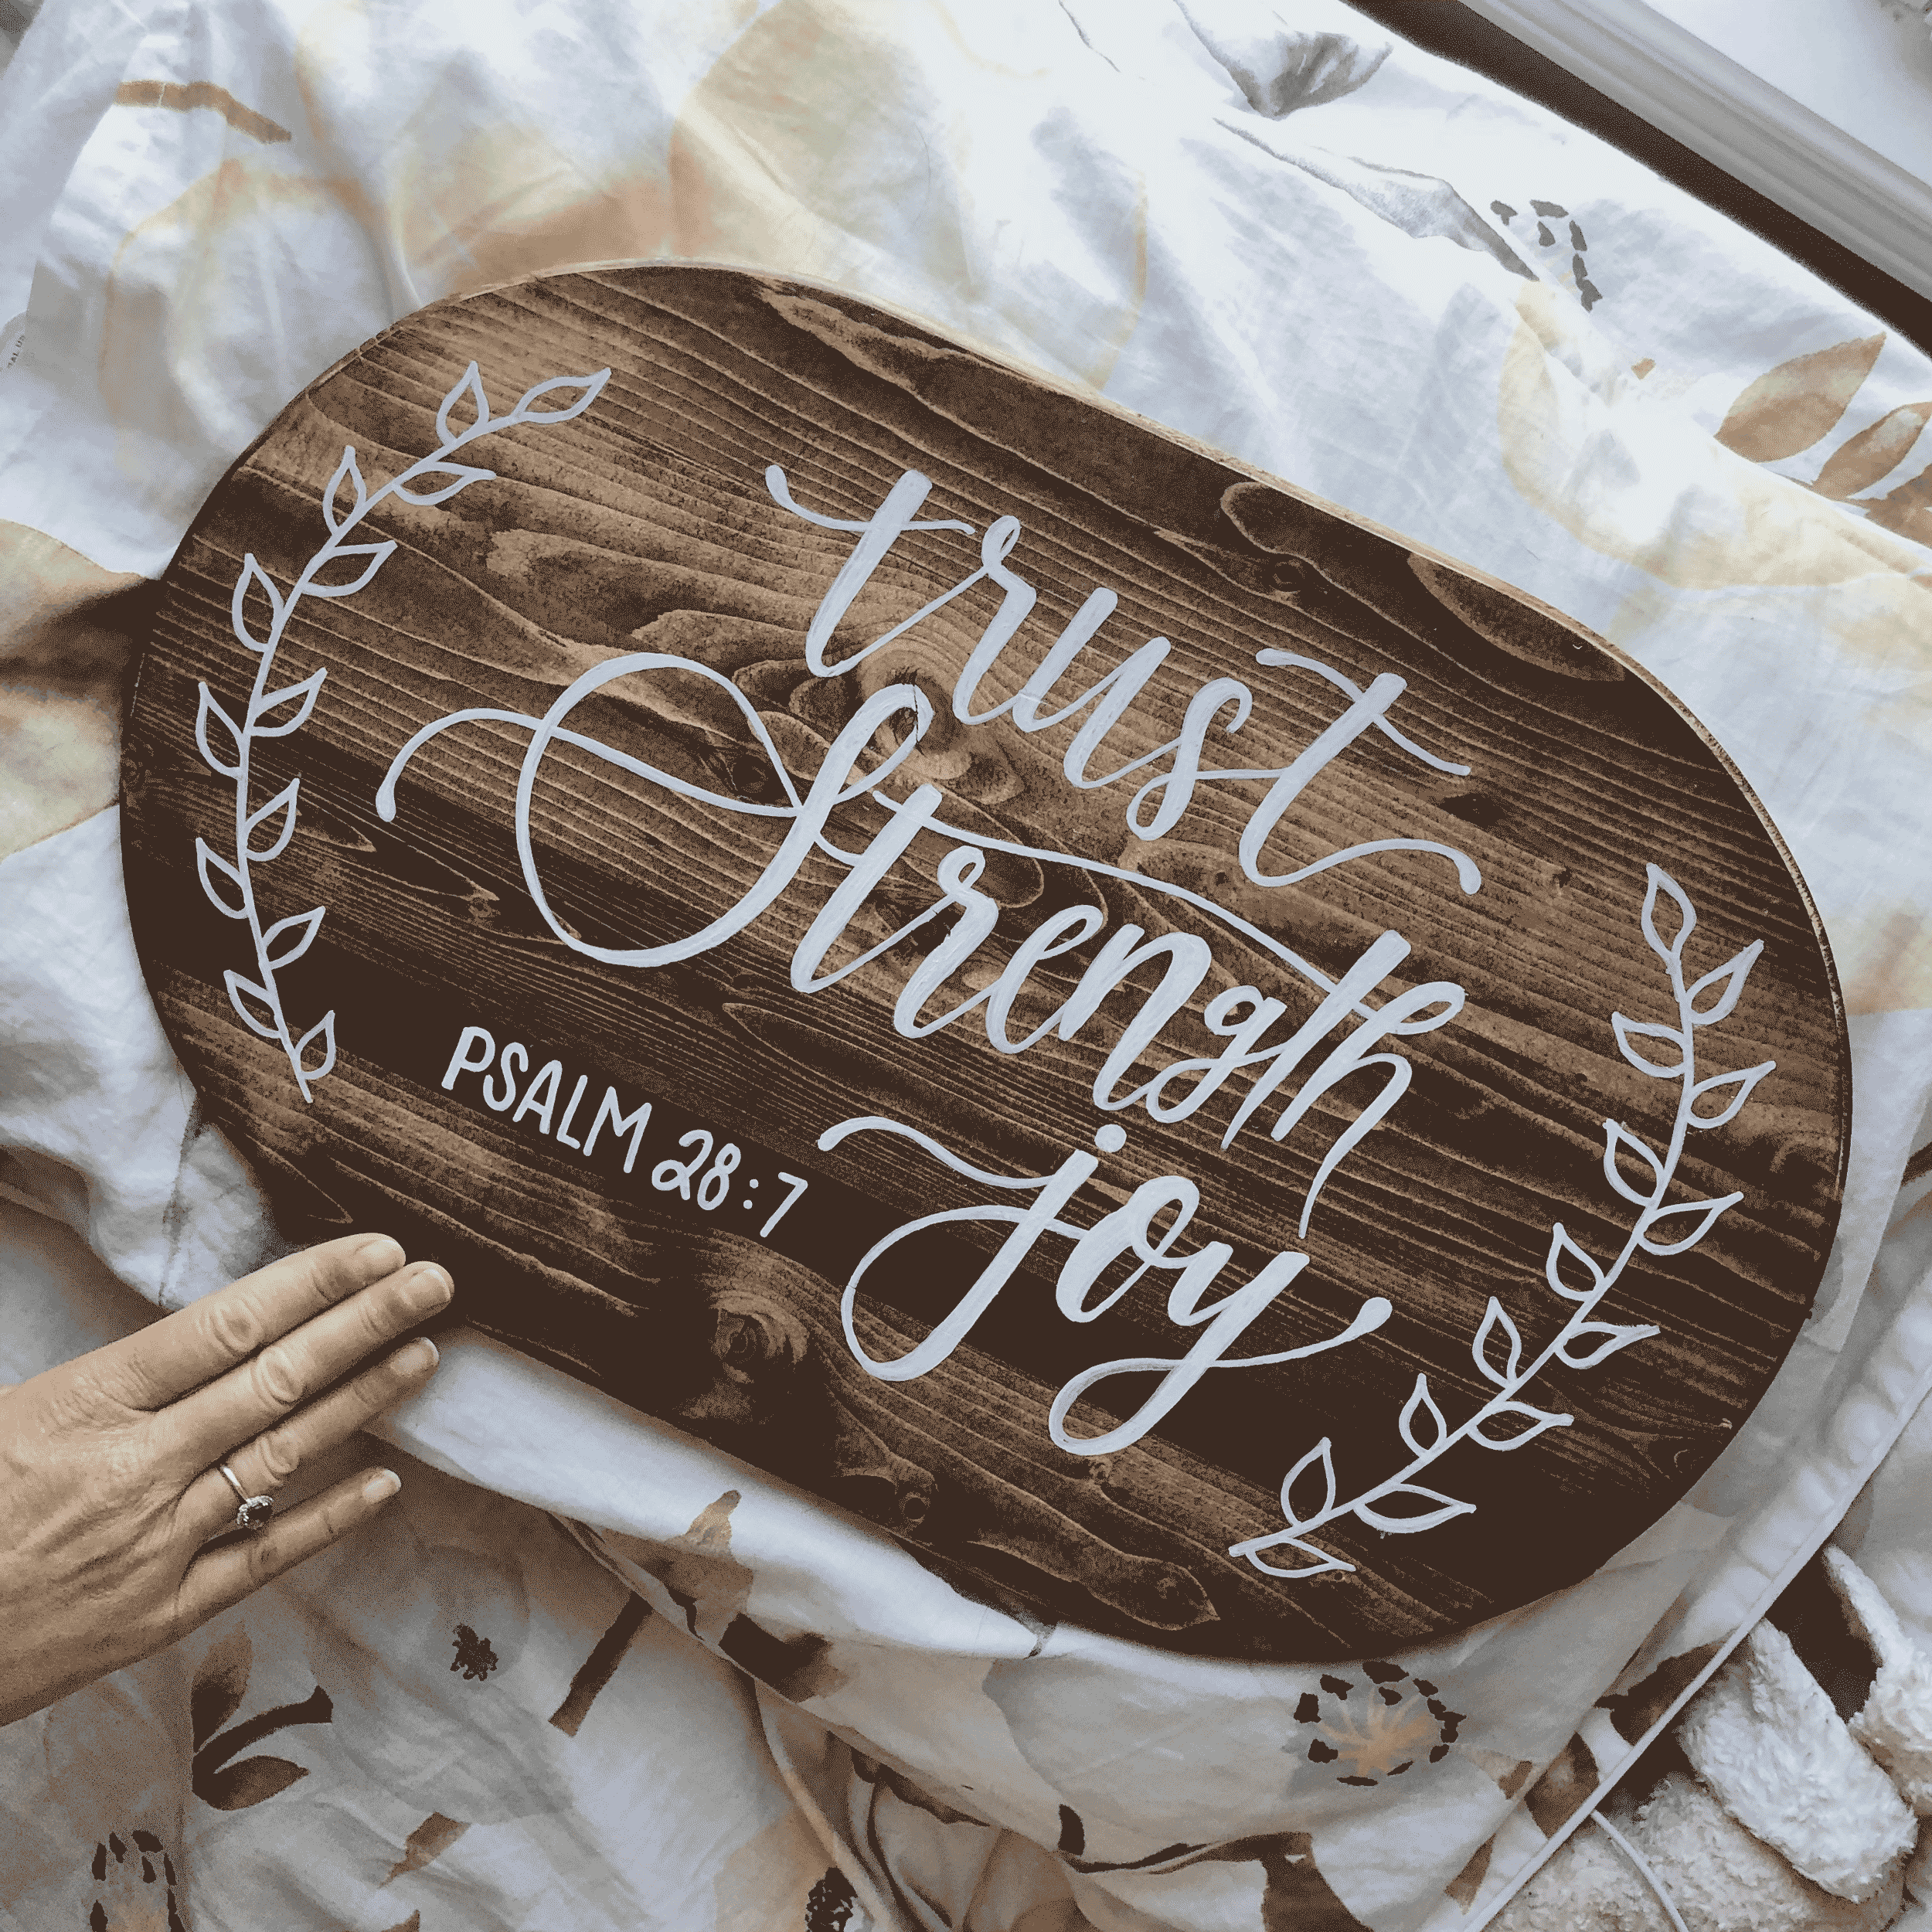 trust
Strength
joy
PSALM 28:7